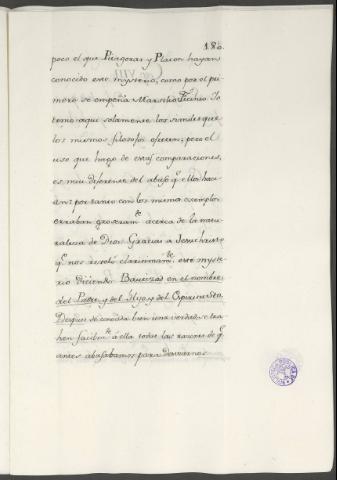 180.
poco el que Pitagoras y Platon hayan
conocido este mysterio, como por el pri-
mero se empeña Marsilio Ficino. Yo
tomo aqui solamente los simples que
los mismos filosofos ofrecen; pero el
uso que hago de estas comparaciones,
es mui diferente del abuso q.e ellos haci-
an: por tanto con los mismos exemplos
erraban groseram.te acerca de la natu-
raleza de Dios. Gracias a Jesuchristo
q.e nos reveló clarisimam.te este myste-
rio diciendo: Bautizad en el nombre
del Padre, y del Hijo, y del Espiritu Sto.
Despues de conocida bien una verdad, se tra-
hen facilm.te á ella todas las razones de q.e
antes abusabamos para dañarnos.